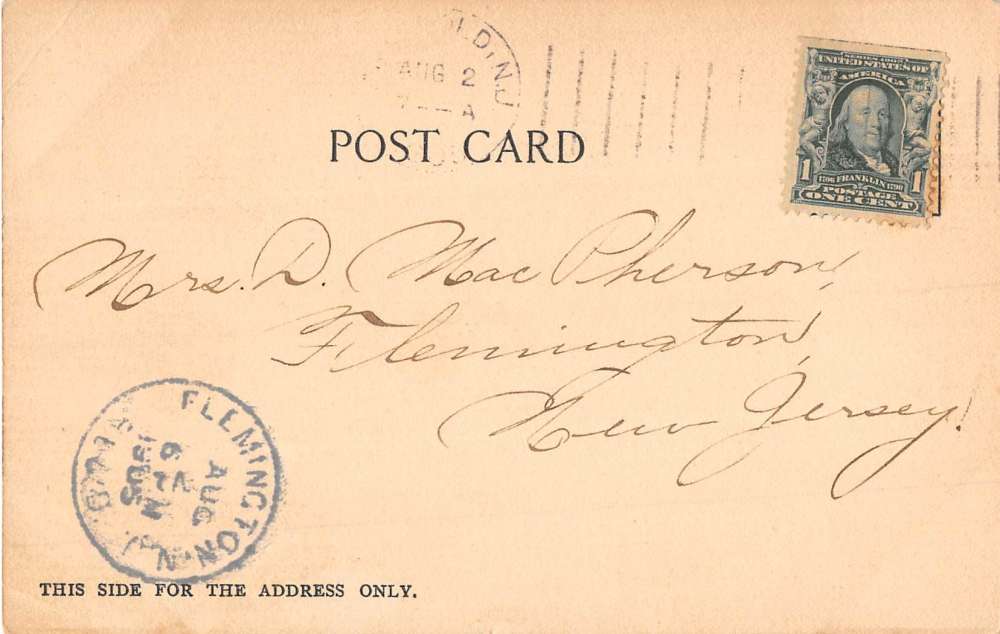 N.J.
AUG 2
A
SERIES 1902
UNITED STATES OF
AMERICA
1 1706 FRANKLIN 1790 1
POSTAGE
ONE CENT
POST CARD
Mrs. D. MacPherson,
Flemington,
New Jersey.
FLEMINGTON, N.J.
AUG
THIS SIDE FOR THE ADDRESS ONLY.